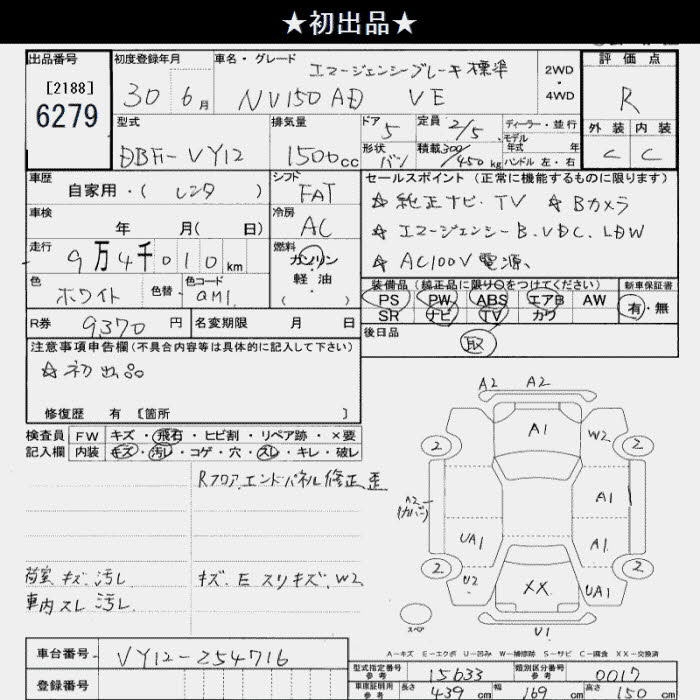 ★初出品★
出品番号
[2188]
6279
初度登録年月
30 6月
車名・グレード
エマージェンシーブレーキ標準
NV150AD VE
2WD
・
4WD
評価点
R
外装 内装
C C
型式
DBF-VY12
排気量
1500cc
ドア
5
定員 2/5
ディーラー・並行
モデル
年式 年
形状
バン
積載 300/450kg
ハンドル 左・右
車歴
自家用・( レンタ )
シフト
FAT
車検
年 月( 日)
冷房
AC
走行
9万4千010km
燃料
ガソリン
・
軽油
色
ホワイト
色替
色コード
QM1
R券 9370円
名変期限 月 日
セールスポイント(正常に機能するものに限ります)
☆純正ナビ・TV ☆Bカメラ
☆エマージェンシーB.VDC.LDW
☆AC100V電源、
装備品(純正品に限り○をつけてください)
新車保証書
PS PW ABS エアB AW
SR ナビ TV カワ
有・無
後日品
取
注意事項申告欄(不具合内容等は具体的に記入して下さい)
☆初出品
修復歴 有 [箇所 ]
検査員
記入欄
FW キズ・飛石・ヒビ割・リペア跡・×要
内装 キズ・汚レ・コゲ・穴・スレ・キレ・破レ
Rフロア.エンドパネル修正歪
荷室 キズ.汚レ
車内 スレ 汚レ
キズ.E スリキズ.W2
A2 A2
A1
2 W2 2
A2
(カバー)
A1
UA1 A1
2 2
U2 XX UA1
スペア
U1
A−キズ E−エクボ U−凹み W−補修跡 S−サビ C−腐食 XX−交換済
車台番号 VY12-254716
登録番号
型式指定番号
参考
15633
類別区分番号
参考
0017
車庫証明用
参考
長さ 439cm 幅 169cm 高さ 150cm